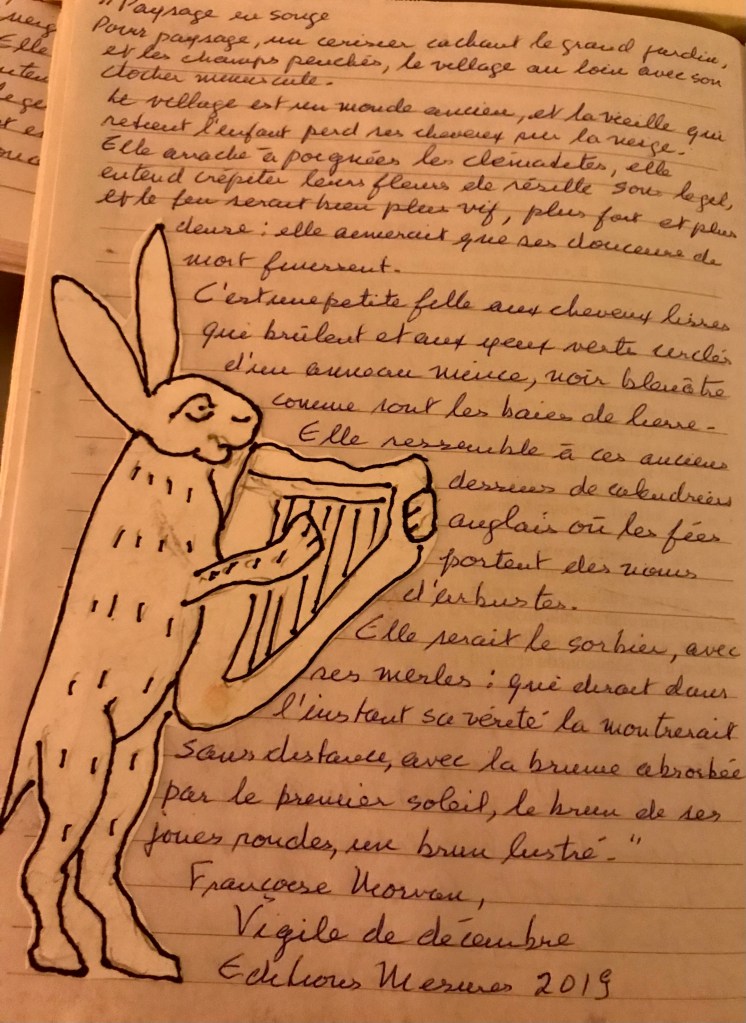 " Paysage en songe
Pour paysage, un cerisier cachant le grand jardin,
et les champs penchés, le village au loin avec son
clocher minuscule.
Le village est un monde ancien, et la vieille qui
retient l'enfant perd ses cheveux sur la neige.
Elle arrache à poignées les clématites, elle
entend crépiter leurs fleurs de résille sous le gel,
et le feu serait bien plus vif, plus fort et plus
dense : elle aimerait que ses douceurs de
mort finissent.
C'est une petite fille aux cheveux lisses
qui brûlent et aux yeux verts cerclés
d'un anneau mince, noir bleuâtre
comme sont les baies de lierre.
Elle ressemble à ces anciens
dessins de calendriers
anglais où les fées
portent des noms
d'arbustes.
Elle serait le sorbier, avec
ses merles : qui dirait dans
l'instant sa vérité la montrerait
sans distance, avec la brume absorbée
par le premier soleil, le brun de ses
joues rondes, un brun lustré. "
Françoise Morvan,
Vigile de décembre
Editions Mesures 2019